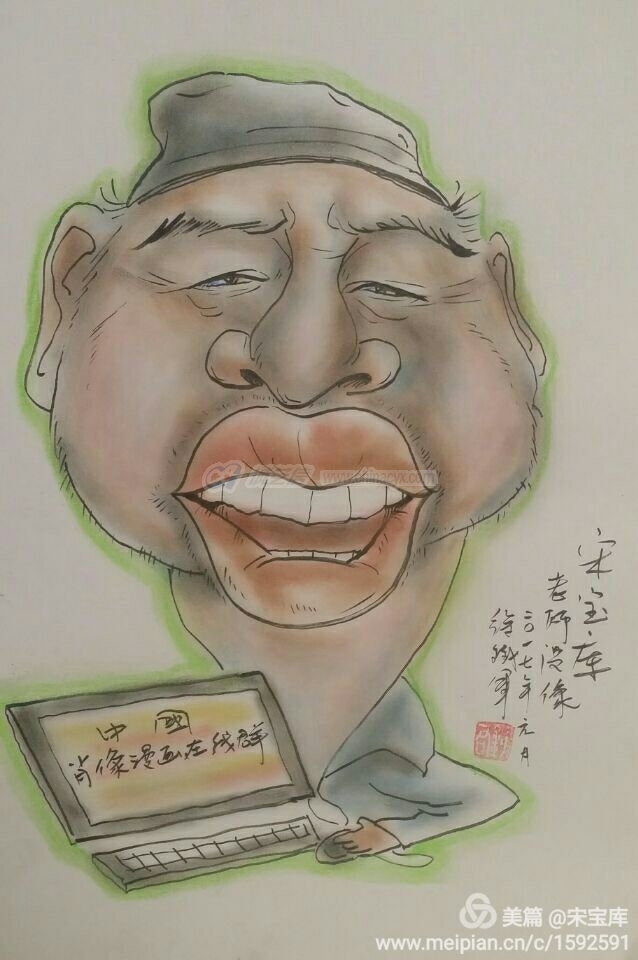 中國
肖像漫画在线群
宋宝库
老师漫像
二〇一七年元月
徐鐵軍
美篇 @宋宝库
www.meipian.cn/c/1592591